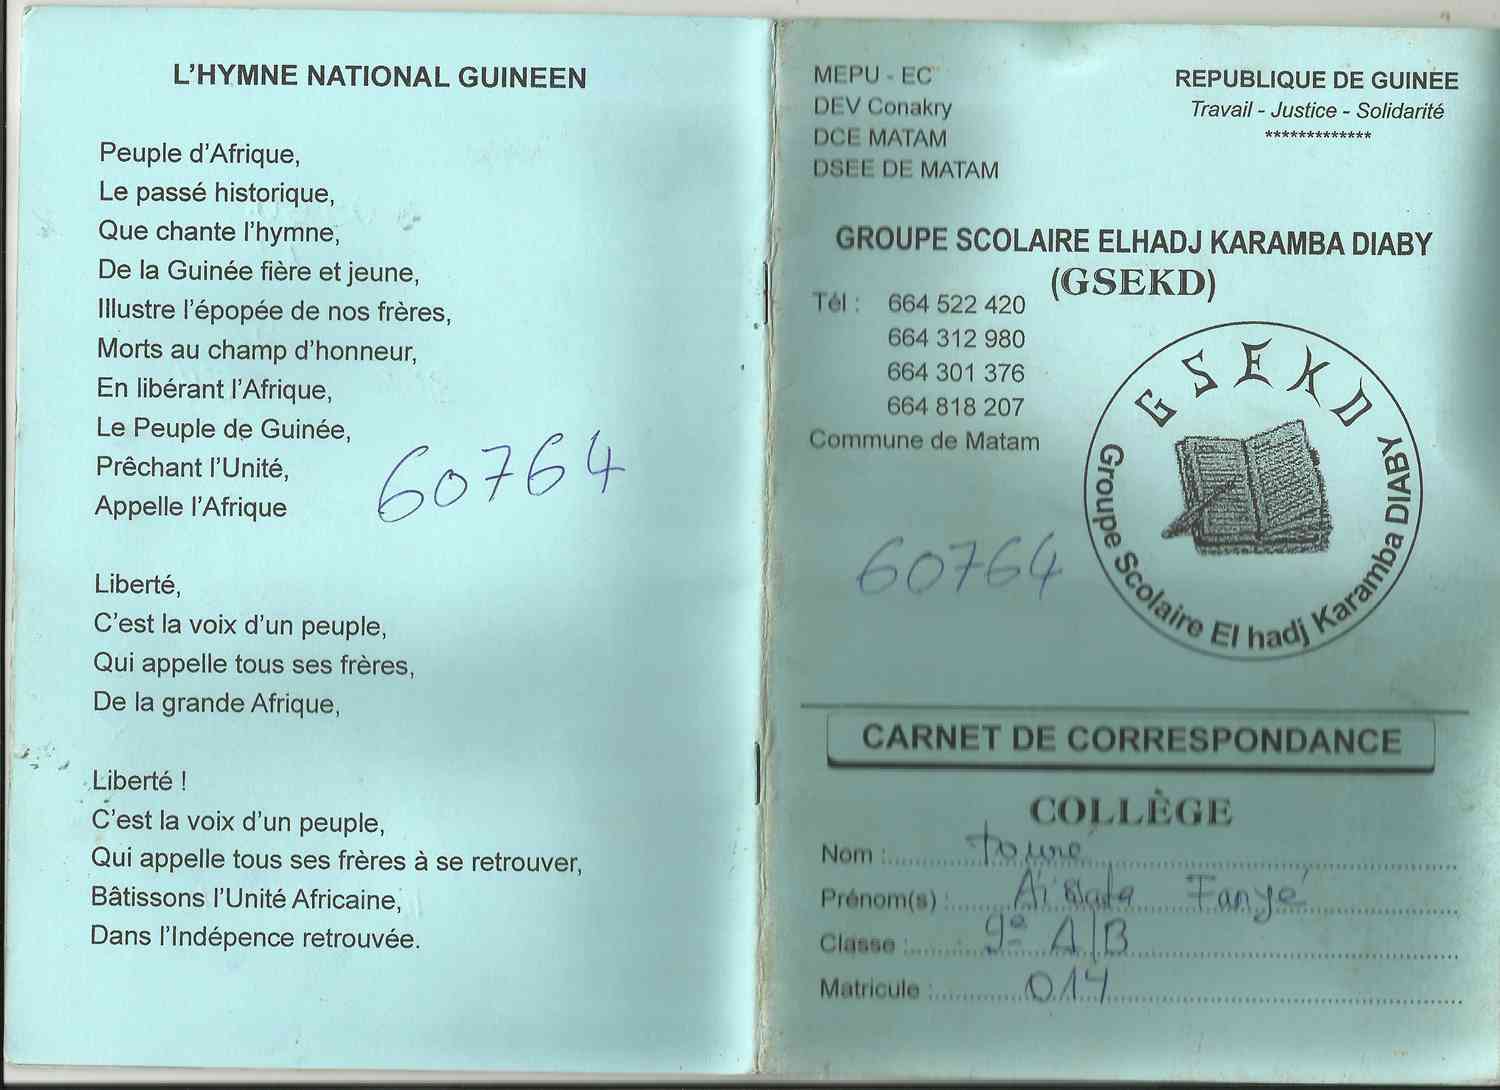 L'HYMNE NATIONAL GUINEEN
Peuple d'Afrique,
Le passé historique,
Que chante l'hymne,
De la Guinée fière et jeune,
Illustre l'épopée de nos frères,
Morts au champ d'honneur,
En libérant l'Afrique,
Le Peuple de Guinée,
Prêchant l'Unité,
Appelle l'Afrique
60764
Liberté,
C'est la voix d'un peuple,
Qui appelle tous ses frères,
De la grande Afrique,
Liberté !
C'est la voix d'un peuple,
Qui appelle tous ses frères à se retrouver,
Bâtissons l'Unité Africaine,
Dans l'Indépence retrouvée.
MEPU - EC
DEV Conakry
DCE MATAM
DSEE DE MATAM
REPUBLIQUE DE GUINEE
Travail - Justice - Solidarité
*************
GROUPE SCOLAIRE ELHADJ KARAMBA DIABY
(GSEKD)
Tél : 664 522 420
664 312 980
664 301 376
664 818 207
Commune de Matam
GSEKD
Groupe Scolaire El hadj Karamba DIABY
60764
CARNET DE CORRESPONDANCE
COLLÈGE
Nom : Touré
Prénom(s) : Aïssata Fanyé
Classe : 9e A/B
Matricule : 014